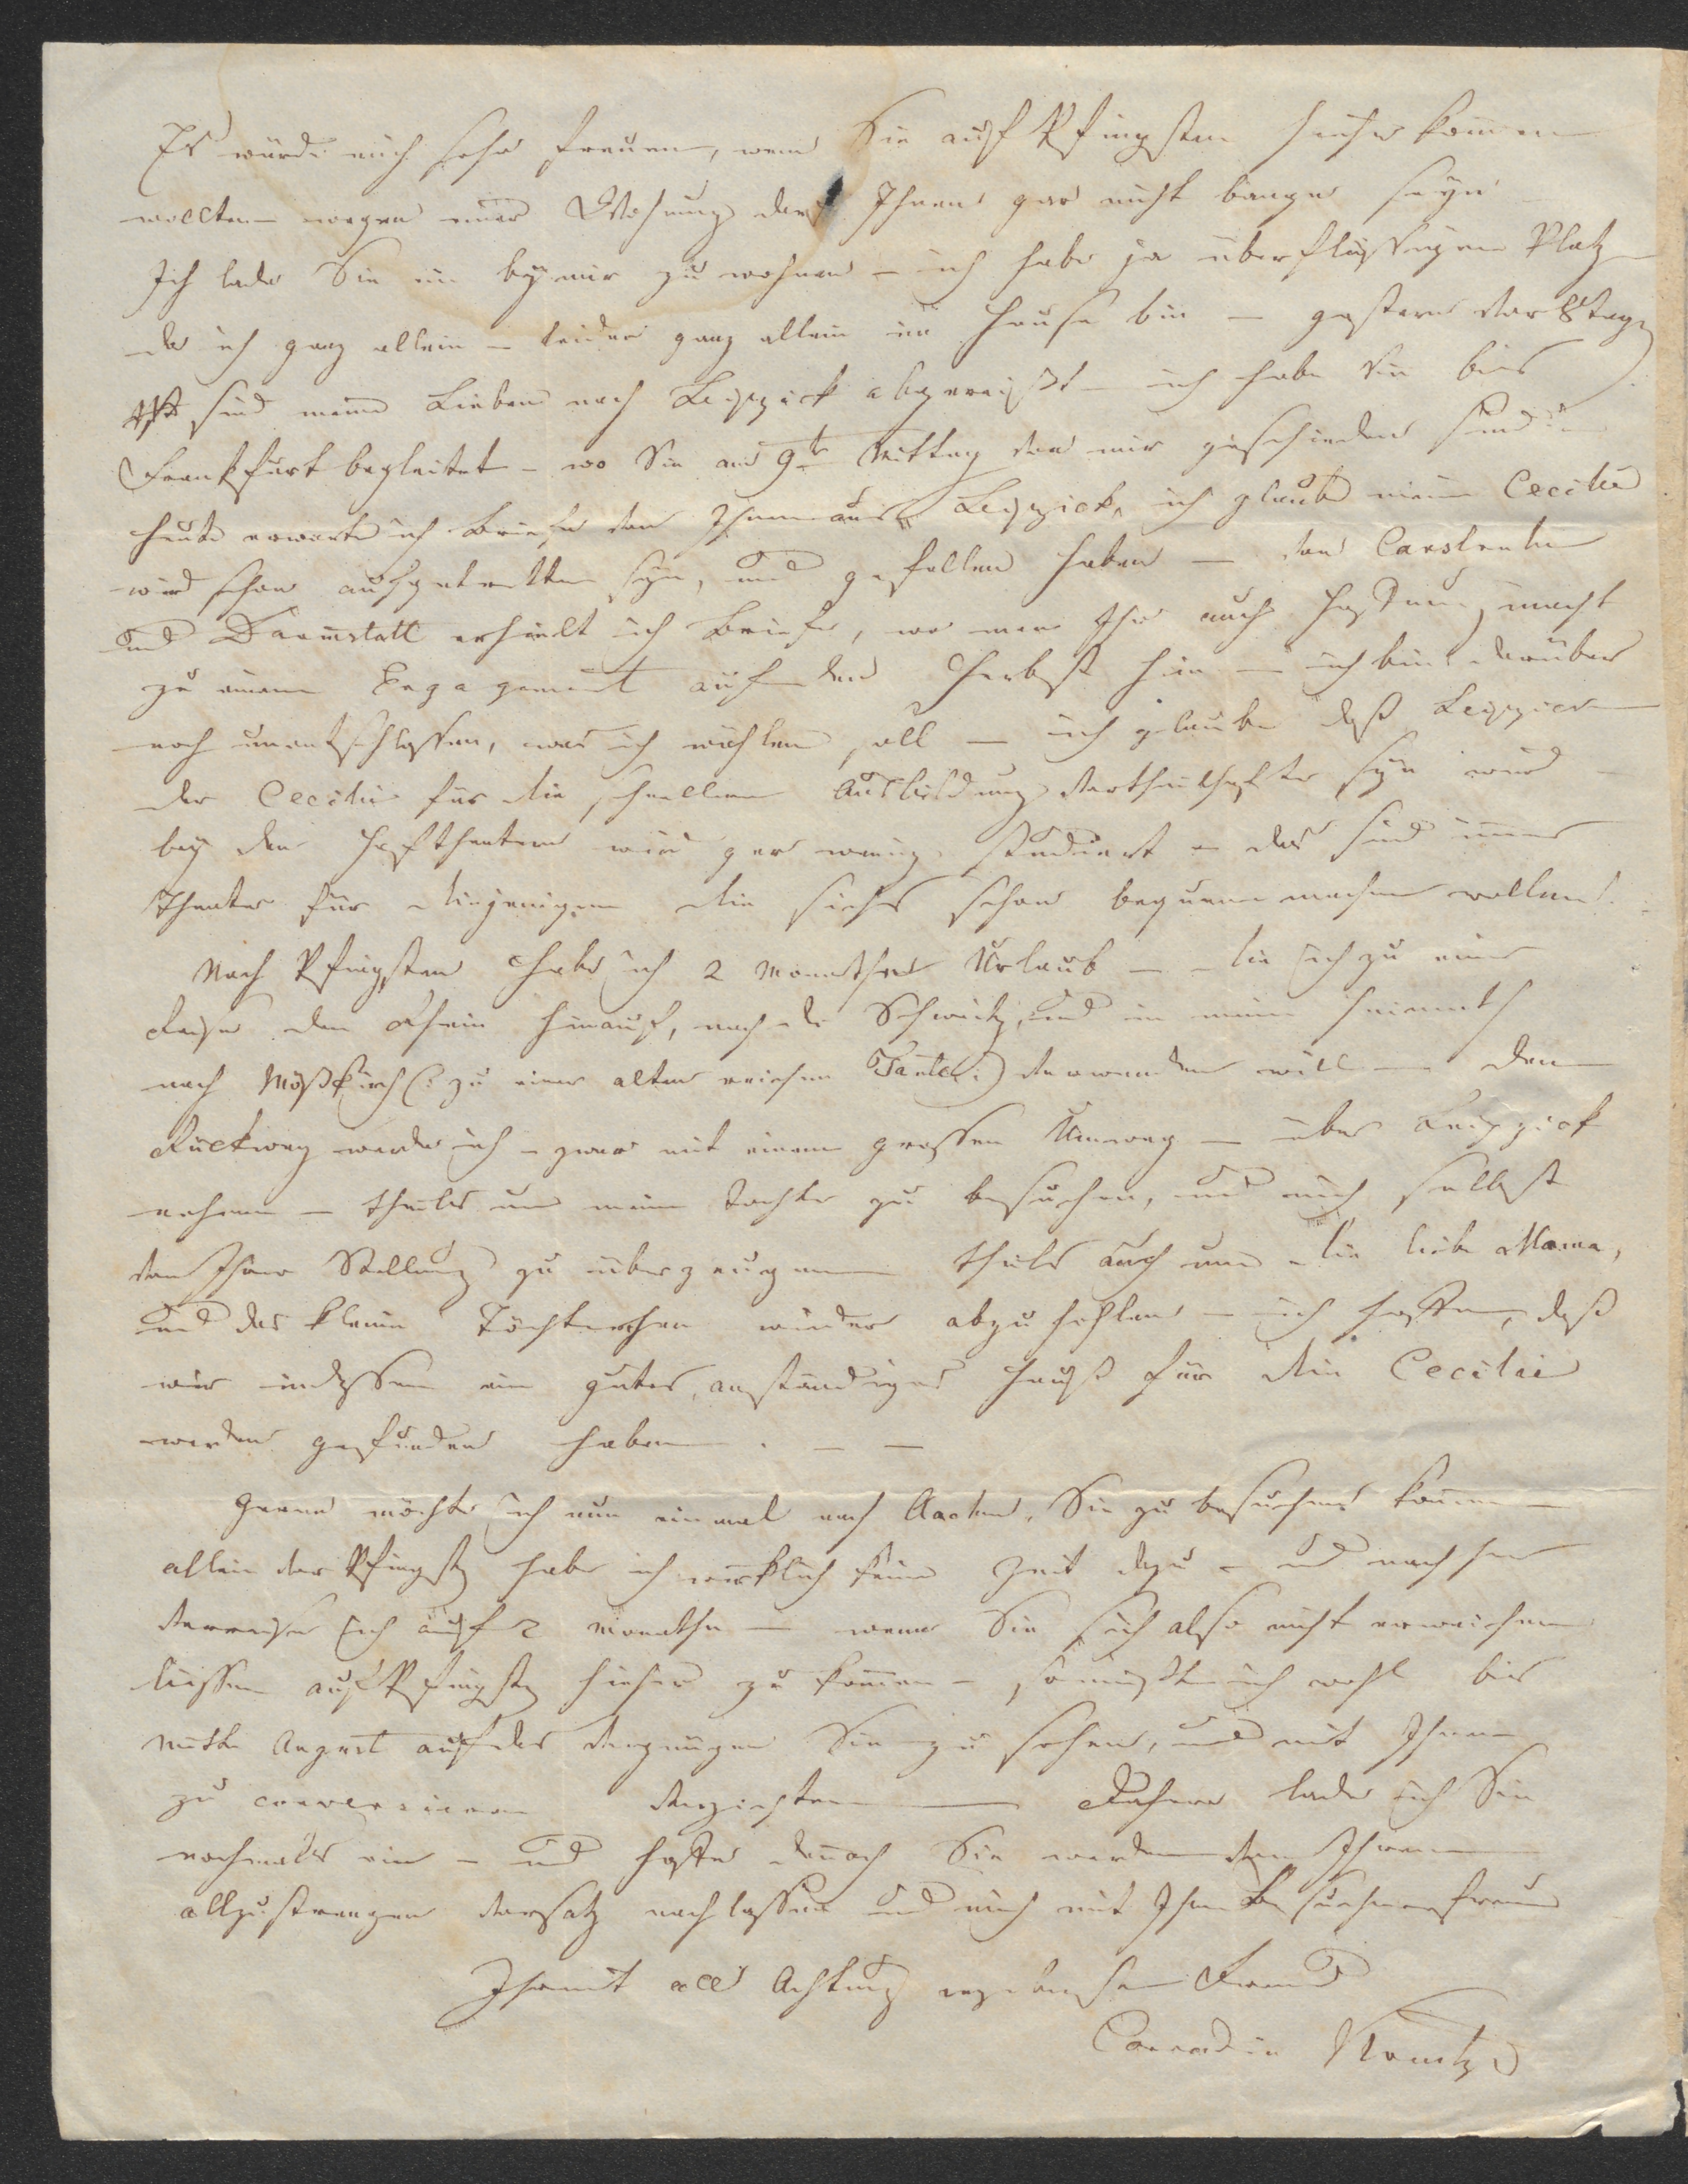 Es würde mich sehr freuen, wenn Sie auf Pfingsten hieher kommen
wollten – wegen einer Wohnung darf Ihnen gar nicht bange seyn
Ich lade Sie ein bey mir zu wohnen – ich habe ja überflüssigen Platz
da ich ganz allein – leider ganz allein im Hause bin – gestern vor 8 Tage
sind meine Lieben nach Leipzick abgereißt – ich habe Sie bis
Frankfurt begleitet – wo Sie am 9t Mittag von mir geschieden sind
heute erwarte ich Briefe von Ihnen aus Leipzick, ich glaube meine Cecilie
wird schon aufgetretten seyn, und gefallen haben – von Carlsruhe
und Darmstatt erhielt ich Briefe, wo man Ihr auch Hoffnung macht
zu einem Engagement auf den Herbst hin – ich bin darüber
noch unentschlossen, was ich wählen soll – ich glaube daß Leipzick
der Cecilie für die schnellere Ausbildung vortheilhafter seyn wird –
bey den Hoftheatern wird gar wenig studiert – das sind immer
Theater für diejenigen die sichs schon bequem machen wollen.
Nach Pfingsten habe ich 2 Monathe Urlaub – die ich zu einer
Reise den Rhein hinauf, nach der Schweitz, und in meine Heimath
nach Mößkirch (: zu einer alten reichen Tante :) verwenden will – den
Rückweg werde ich – zwar mit einem grossen Umweg – über Leipzick
nehmen – theils um meine Tochter zu besuchen, und mich selbst
von Ihrer Stellung zu überzeugen theils auch um die liebe Mama,
und das kleine Töchterchen wieder abzuhohlen – ich hoffe, daß
wir indessen ein gutes, anständiges Hauß für die Cecilie
werden gefunden haben. – –
Gerne möchte ich nun einmal nach Aachen, Sie zu besuchen kommen –
allein vor Pfingsten habe ich wirklich keine Zeit dazu – und nachher
verreise ich auf 2 Monathe – wenn Sie sich also nicht erweichen
liessen auf Pfingsten hieher zu kommen – so müßte ich wohl bis
Mitte August auf das Vergnügen Sie zu sehen, und mit Ihnen
zu conversieren verzichten – Daher lade ich Sie
nochmals ein – und hoffe dennoch Sie werden von Ihrem
allzustrengen Vorsatz nachlassen und mich mit Ihrem Besuche erfreuen
Ihr mit all Achtung ergebenster Freund
Conradin Kreutzer